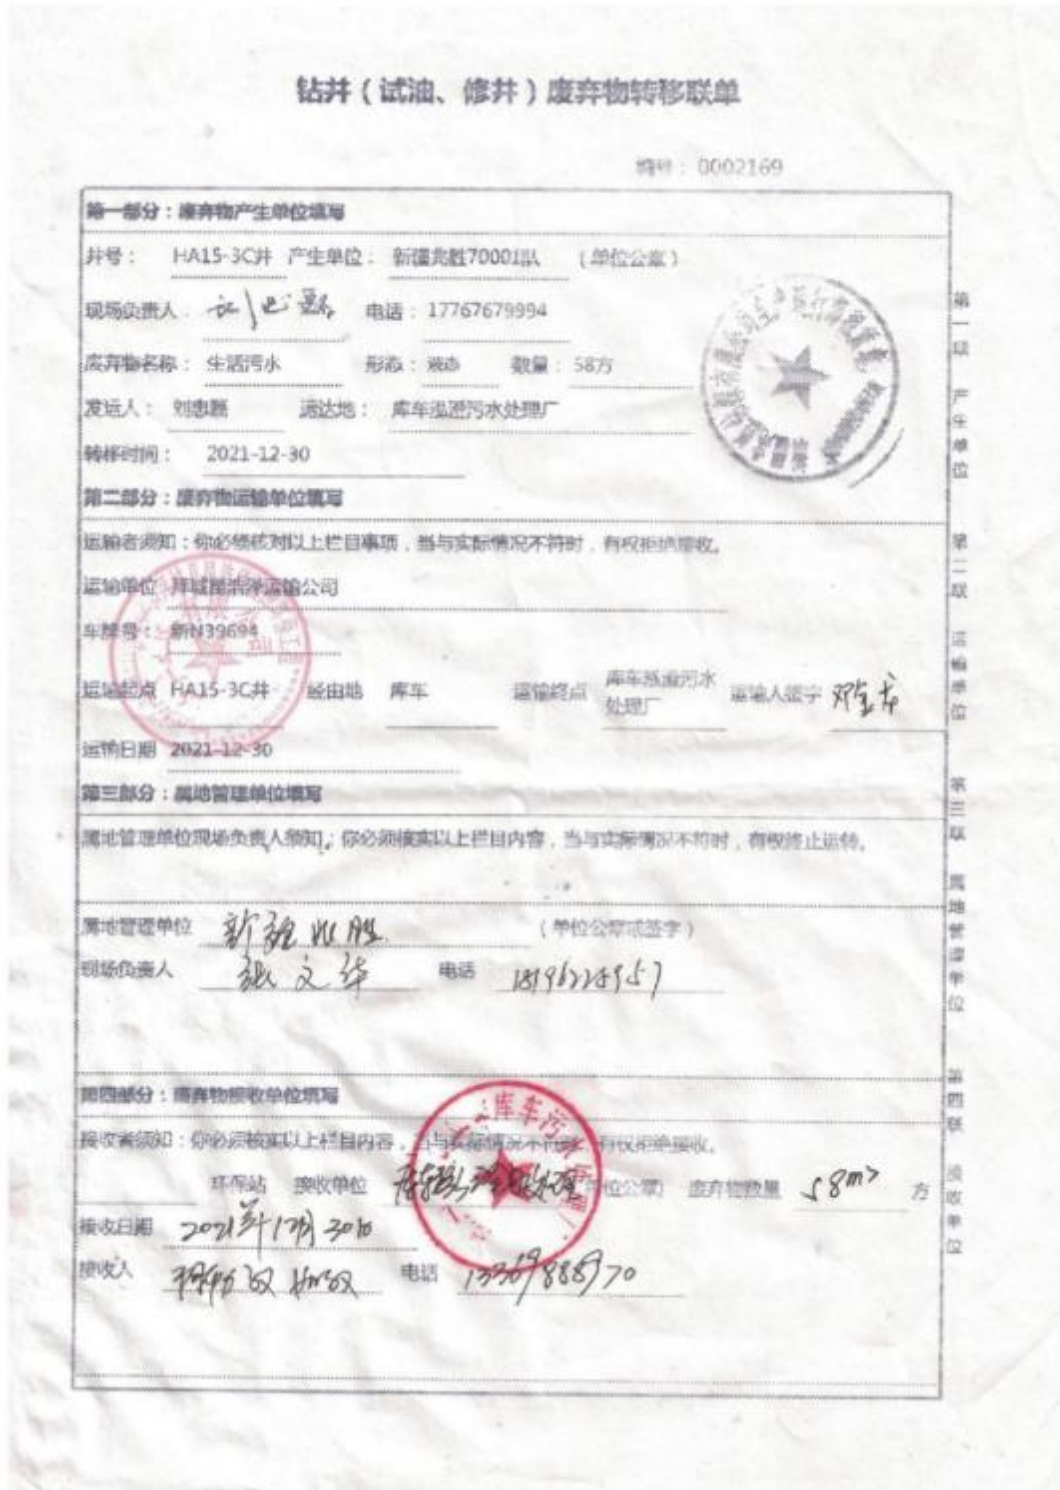 钻井（试油、修井）废弃物转移联单
编号：0002169
第一部分：废弃物产生单位填写
井号：HA15-3C井 产生单位：新疆兆胜70001队 （单位公章）
现场负责人： 电话：17767679994
废弃物名称：生活污水 形态：液态 数量：58方
发运人：刘忠磊 运达地：库车泓澄污水处理厂
转移时间：2021-12-30
第二部分：废弃物运输单位填写
运输者须知：你必须核对以上栏目事项，当与实际情况不符时，有权拒绝接收。
运输单位 拜城昆浩洋运输公司
车牌号：新N39694
运输起点 HA15-3C井 经由地 库车 运输终点 库车泓澄污水处理厂 运输人签字 邓金龙
运输日期 2021-12-30
第三部分：属地管理单位填写
属地管理单位现场负责人须知：你必须核实以上栏目内容，当与实际情况不符时，有权终止运转。
属地管理单位 新疆兆胜 （单位公章或签字）
现场负责人 张文华 电话
第四部分：废弃物接收单位填写
接收者须知：你必须核实以上栏目内容，当与实际情况不符时，有权拒绝接收。
环保站 接收单位 单位公章) 废弃物数量 58m³ 方
接收日期 2021年12月30日
接收人 电话 13369888970
库车污水处理厂
第一联 产生单位
第二联 运输单位
第三联 属地管理单位
第四联 接收单位